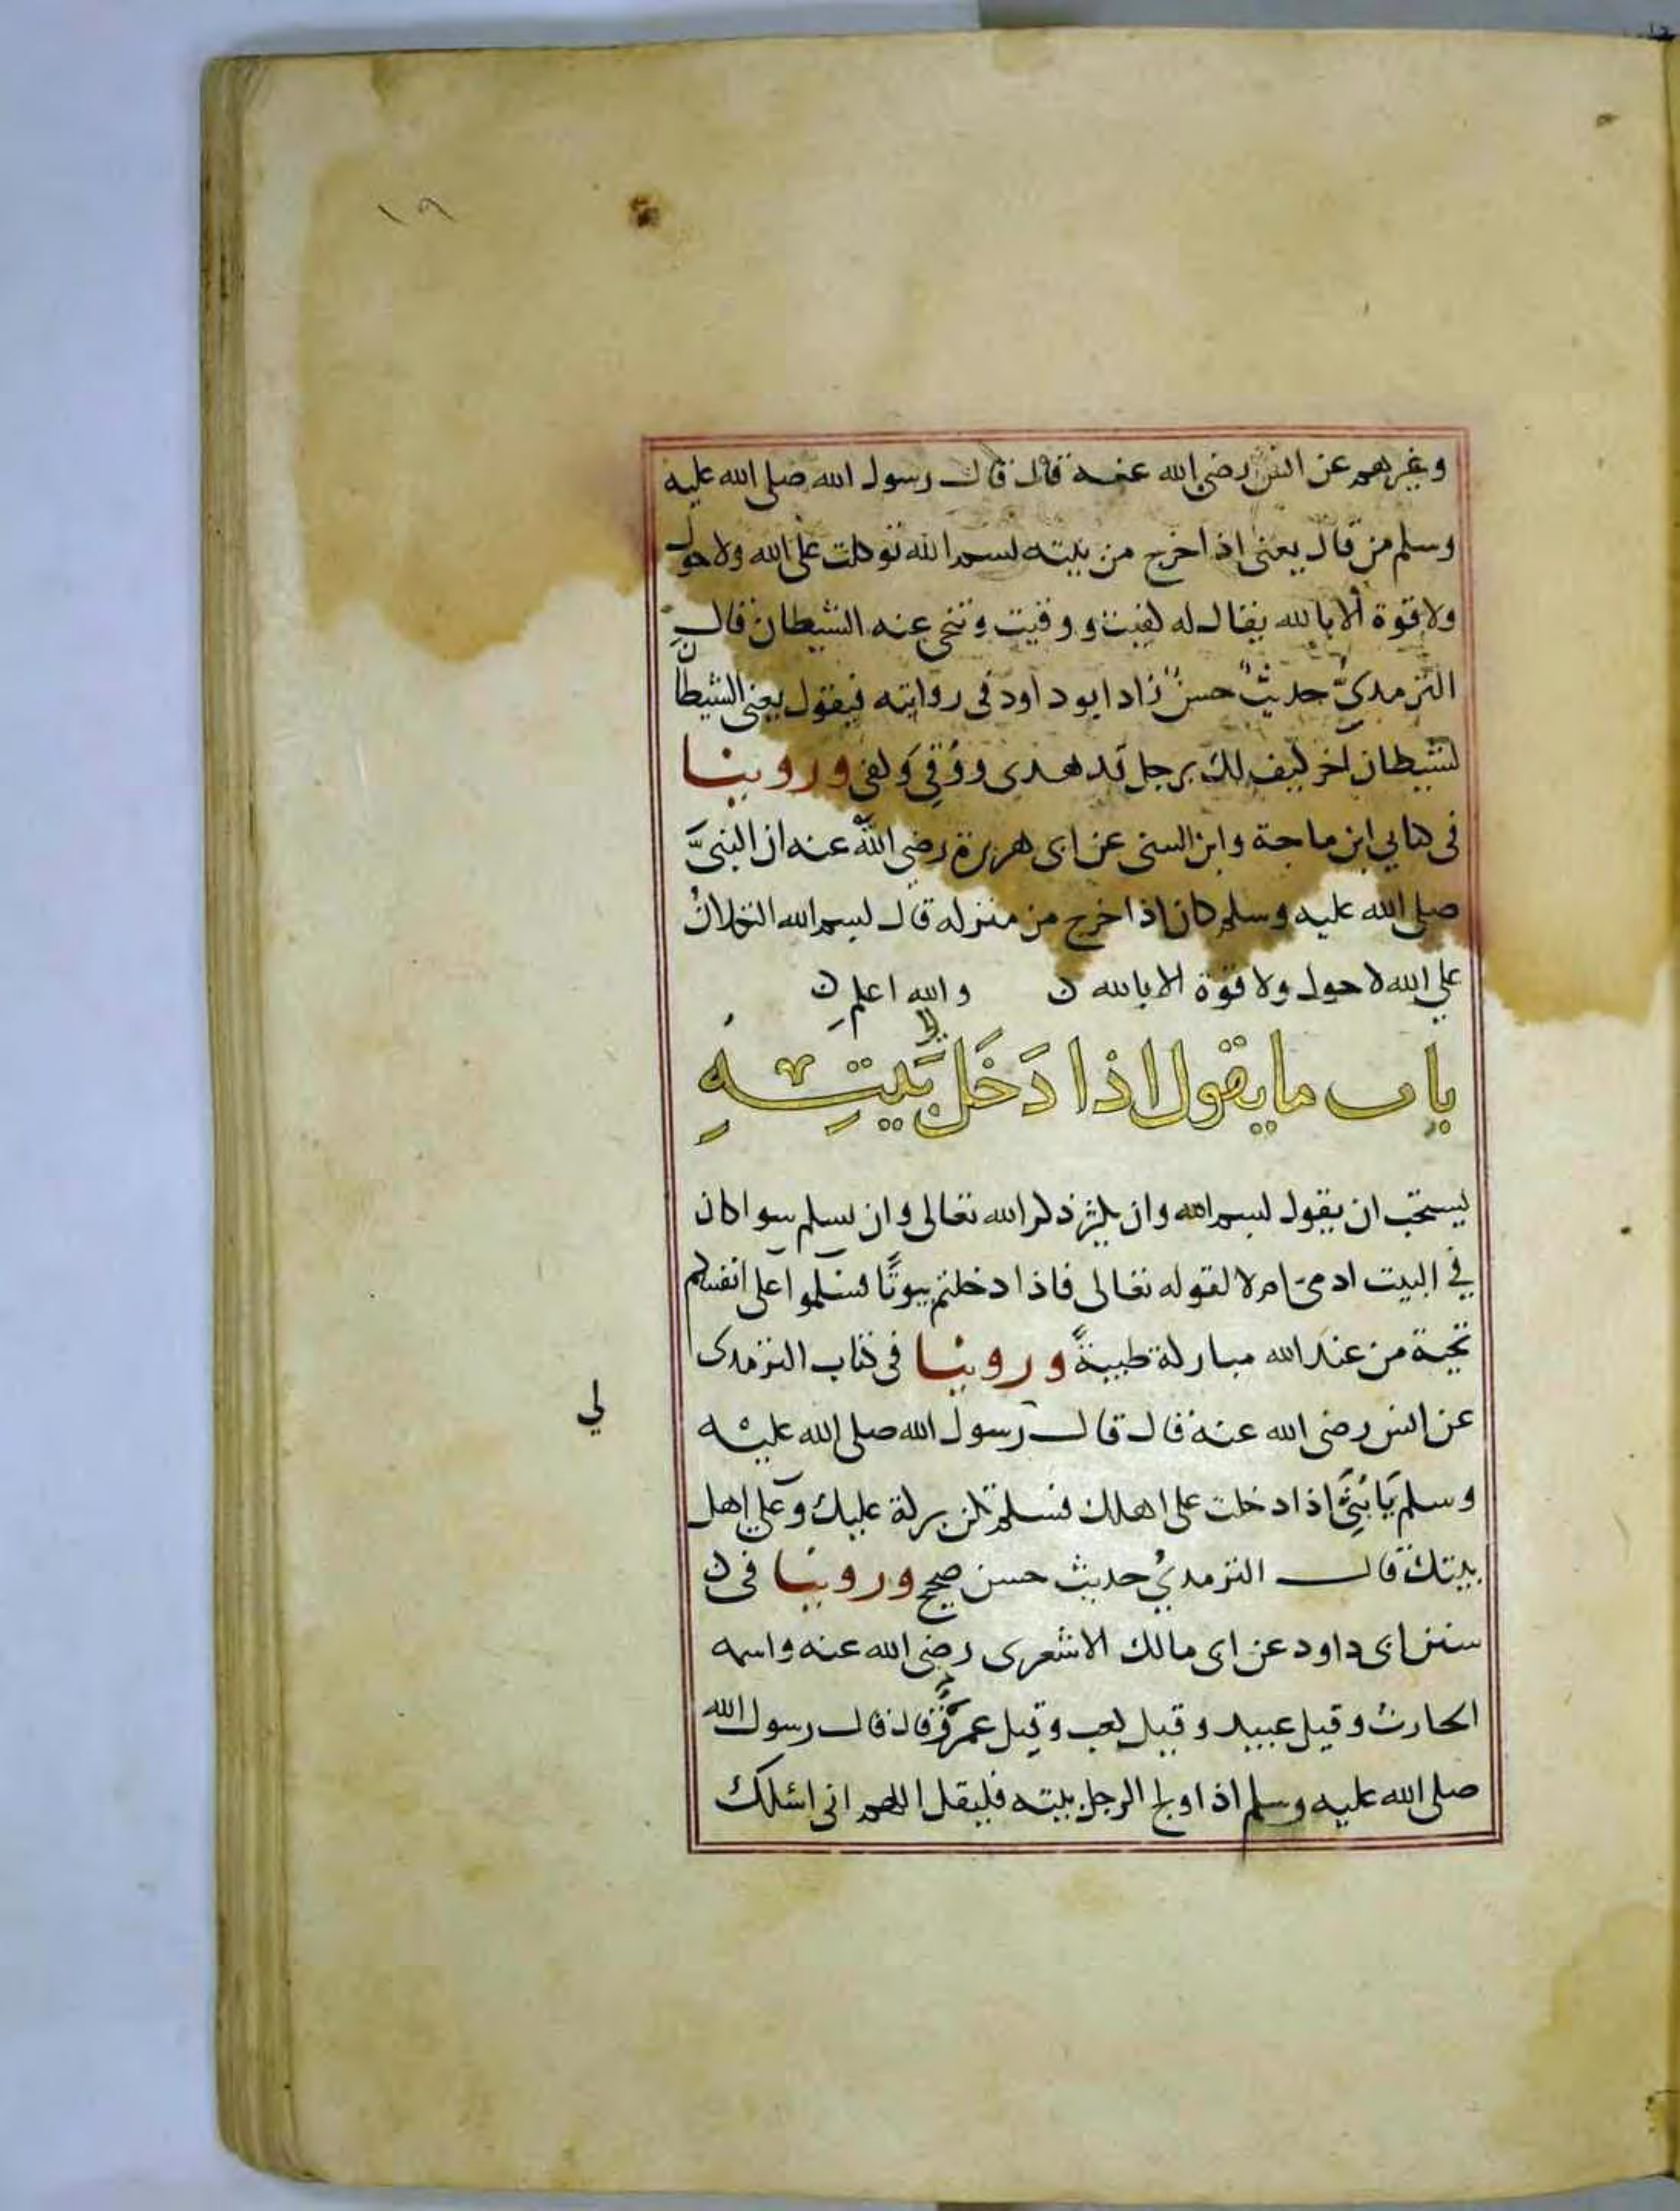 ١٩
وغيرهم عن انس رضي الله عنه قال قال رسول الله صلى الله عليه
وسلم من قال يعنى اذا خرج من بيته بسم الله توكلت على الله ولا حول
ولا قوة الا بالله يقال له كفيت ووقيت وتنحى عنه الشيطان قال
الترمذيُّ حديثٌ حسنٌ زاد ابو داود في روايته فيقول يعنى الشيطان
لشيطان آخر كيف لك برجل قد هدى ووُقِي وكفى وروينا
فى كتابي ابن ماجة وابن السنى عن ابى هريرة رضي الله عنه ان النبيَّ
صلى الله عليه وسلم كان اذا خرج من منزله قال بسم الله التكلانُ
على الله لا حول ولا قوة الا بالله ن والله اعلم ن
باب ما يقول اذا دَخَلَ بَيتِهِ
يستحب ان يقول بسم الله وان يكثر ذكر الله تعالى وان يسلم سوا كان
في البيت ادمىّ ام لا لقوله تعالى فاذا دخلتم بيوتًا فسلموا على انفسكم
تحية من عند الله مباركة طيبةً وروينا فى كتاب الترمذى
عن انس رضى الله عنه قال قال رسول الله صلى الله عليه
وسلم يَا بُنَيَّ اذا دخلت على اهلك فسلم تكن بركة عليك وعلى اهل
بيتك قال الترمذيُ حديث حسن صحيح وروينا فى ن
سنن ابى داود عن ابى مالك الاشعرى رضى الله عنه واسمه
الحارث وقيل عبيد وقيل كعب وقيل عمرو قال قال رسول الله
صلى الله عليه وسلم اذا ولج الرجل بيته فليقل اللهم انى اسئلك
لي